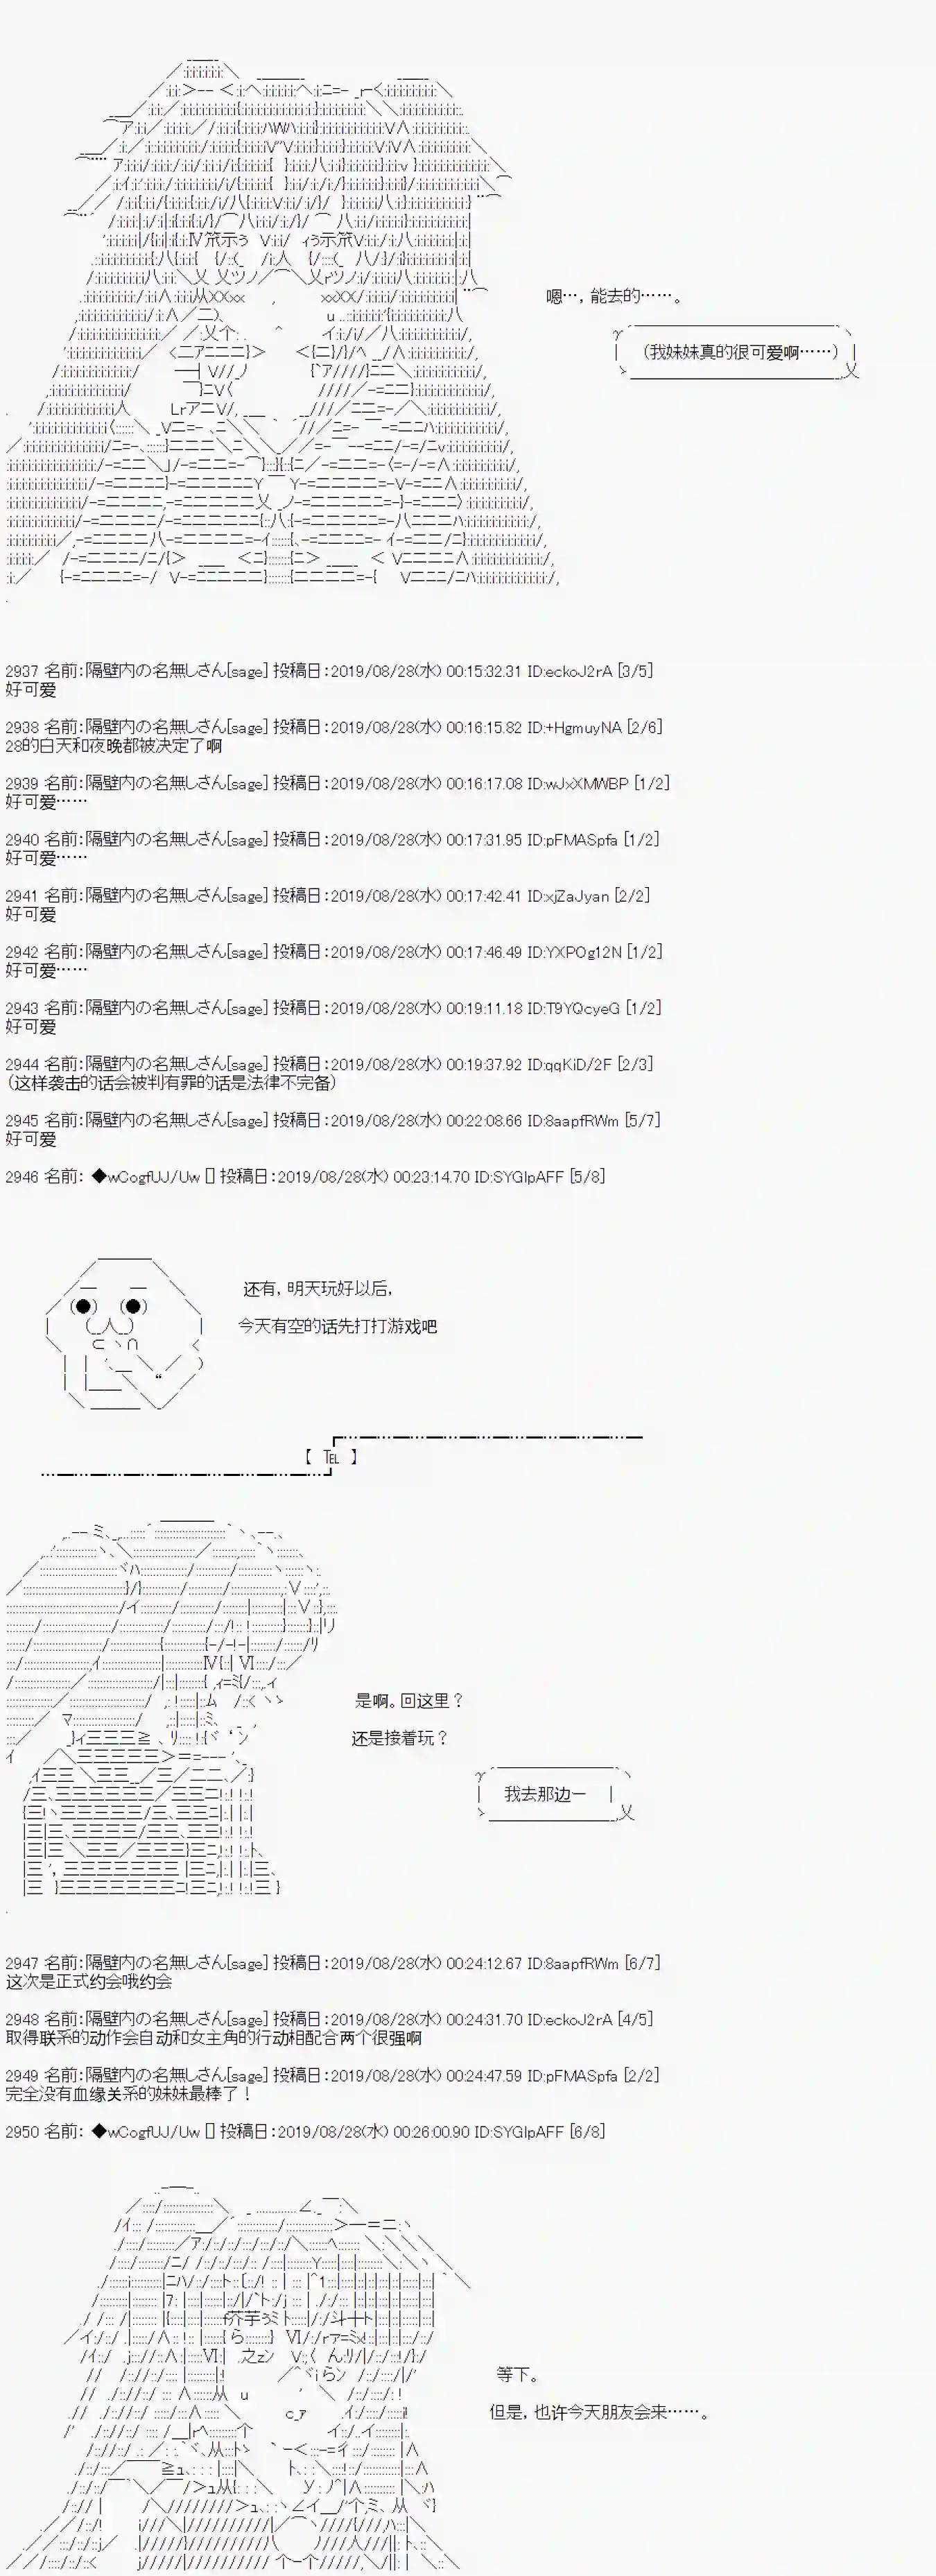 嗯…，能去的……。
（我妹妹真的很可爱啊……）
2937 名前：隔壁内の名無しさん[sage] 投稿日：2019/08/28(水) 00:15:32.31 ID:eckoJ2rA [3/5]
好可爱
2938 名前：隔壁内の名無しさん[sage] 投稿日：2019/08/28(水) 00:16:15.82 ID:+HgmuyNA [2/6]
28的白天和夜晚都被决定了啊
2939 名前：隔壁内の名無しさん[sage] 投稿日：2019/08/28(水) 00:16:17.08 ID:wJxXMWBP [1/2]
好可爱……
2940 名前：隔壁内の名無しさん[sage] 投稿日：2019/08/28(水) 00:17:31.95 ID:pFMASpfa [1/2]
好可爱……
2941 名前：隔壁内の名無しさん[sage] 投稿日：2019/08/28(水) 00:17:42.41 ID:xjZaJyan [2/2]
好可爱
2942 名前：隔壁内の名無しさん[sage] 投稿日：2019/08/28(水) 00:17:46.49 ID:YXPOg12N [1/2]
好可爱……
2943 名前：隔壁内の名無しさん[sage] 投稿日：2019/08/28(水) 00:19:11.18 ID:T9YQcyeG [1/2]
好可爱
2944 名前：隔壁内の名無しさん[sage] 投稿日：2019/08/28(水) 00:19:37.92 ID:qqKiD/2F [2/3]
（这样袭击的话会被判有罪的话是法律不完备）
2945 名前：隔壁内の名無しさん[sage] 投稿日：2019/08/28(水) 00:22:08.66 ID:8aapfRWm [5/7]
好可爱
2946 名前： ◆wCogfUJ/Uw [] 投稿日：2019/08/28(水) 00:23:14.70 ID:SYGlpAFF [5/8]
还有，明天玩好以后，
今天有空的话先打打游戏吧
【 ℡ 】
是啊。回这里？
还是接着玩？
我去那边ー
2947 名前：隔壁内の名無しさん[sage] 投稿日：2019/08/28(水) 00:24:12.67 ID:8aapfRWm [6/7]
这次是正式约会哦约会
2948 名前：隔壁内の名無しさん[sage] 投稿日：2019/08/28(水) 00:24:31.70 ID:eckoJ2rA [4/5]
取得联系的动作会自动和女主角的行动相配合两个很强啊
2949 名前：隔壁内の名無しさん[sage] 投稿日：2019/08/28(水) 00:24:47.59 ID:pFMASpfa [2/2]
完全没有血缘关系的妹妹最棒了！
2950 名前： ◆wCogfUJ/Uw [] 投稿日：2019/08/28(水) 00:26:00.90 ID:SYGlpAFF [6/8]
等下。
但是，也许今天朋友会来……。